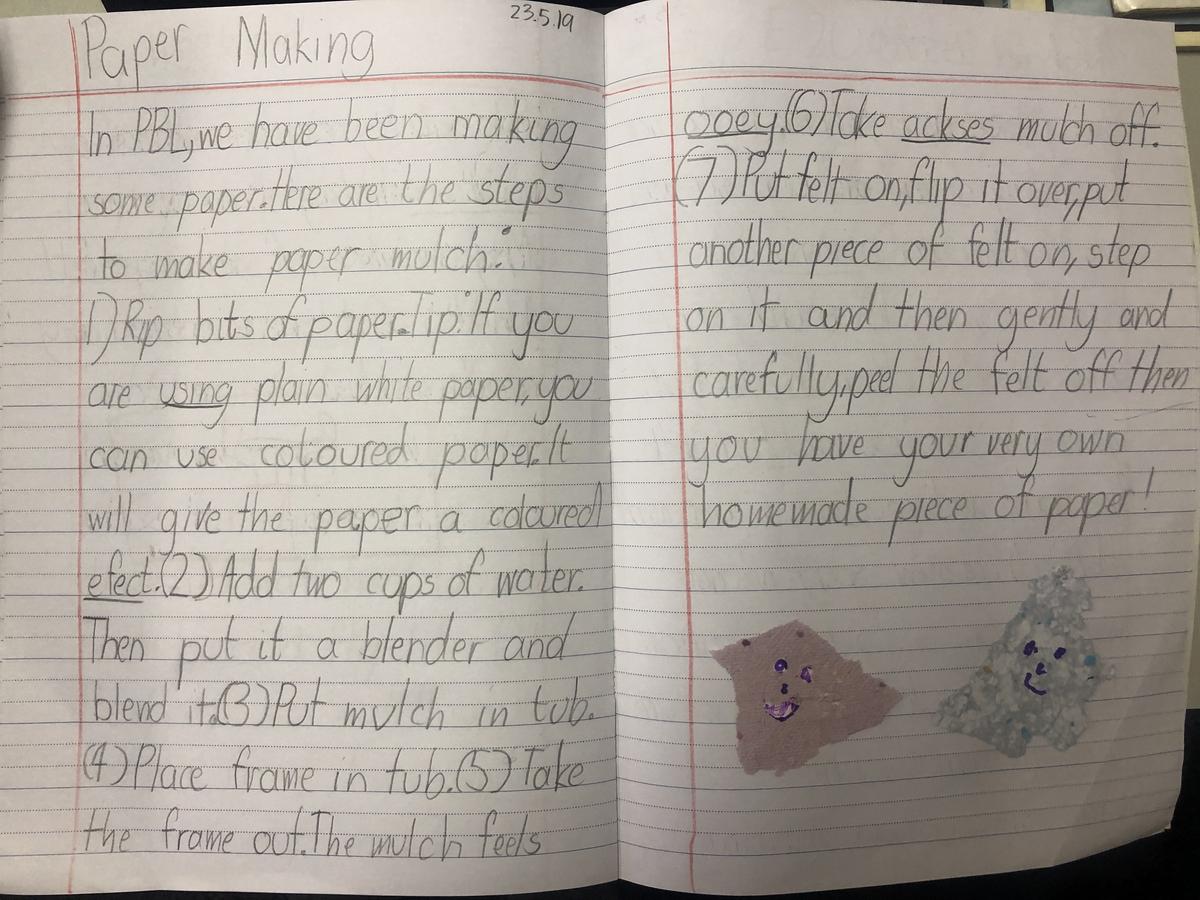 23.5.19
Paper Making
In PBL, we have been making
some paper. Here are the steps
to make paper mulch:
1) Rip bits of paper. Tip: If you
are using plain white paper, you
can use coloured paper. It
will give the paper a coloured
efect. (2) Add two cups of water.
Then put it a blender and
blend it. (3) Put mulch in tub.
(4) Place frame in tub. (5) Take
the frame out. The mulch feels
ooey. (6) Take ackses mulch off.
(7) Put felt on, flip it over, put
another piece of felt on, step
on it and then gently and
carefully, peel the felt off then
you have your very own
homemade piece of paper!